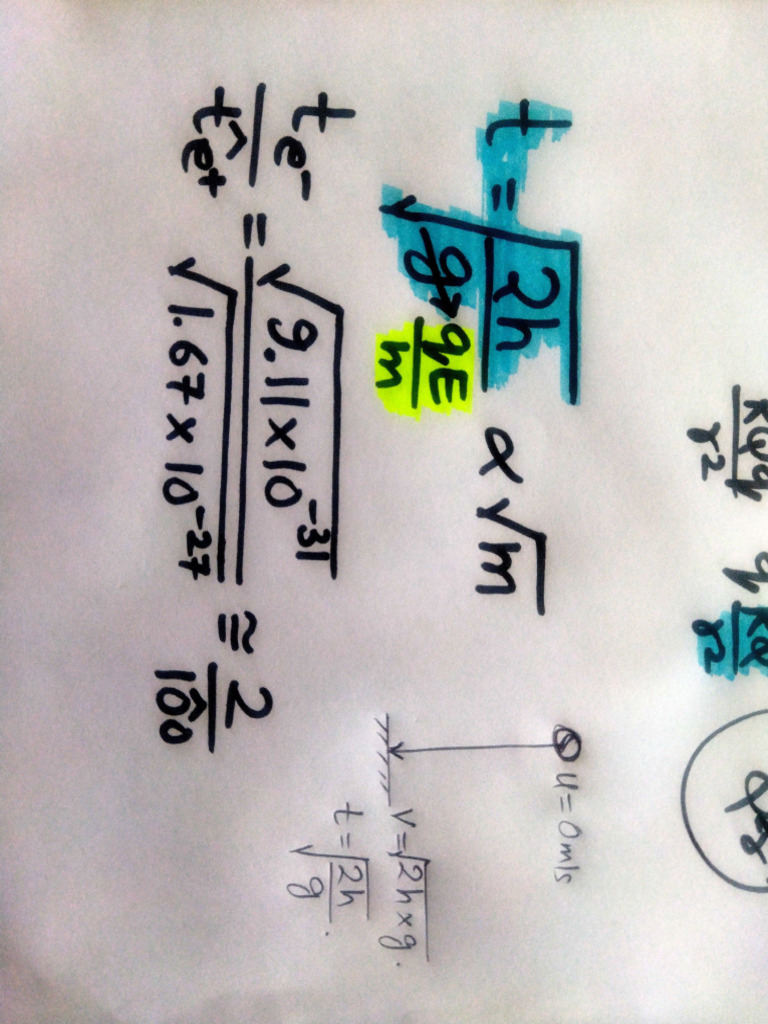 KQq/r² q KQ/r²
t = √(2h/g→qE/m) ∝ √m
te⁻/te⁺ = √9.11×10⁻³¹/√1.67×10⁻²⁷ ≅ 2/100
u = 0m/s
v = √2h×g.
t = √(2h/g).